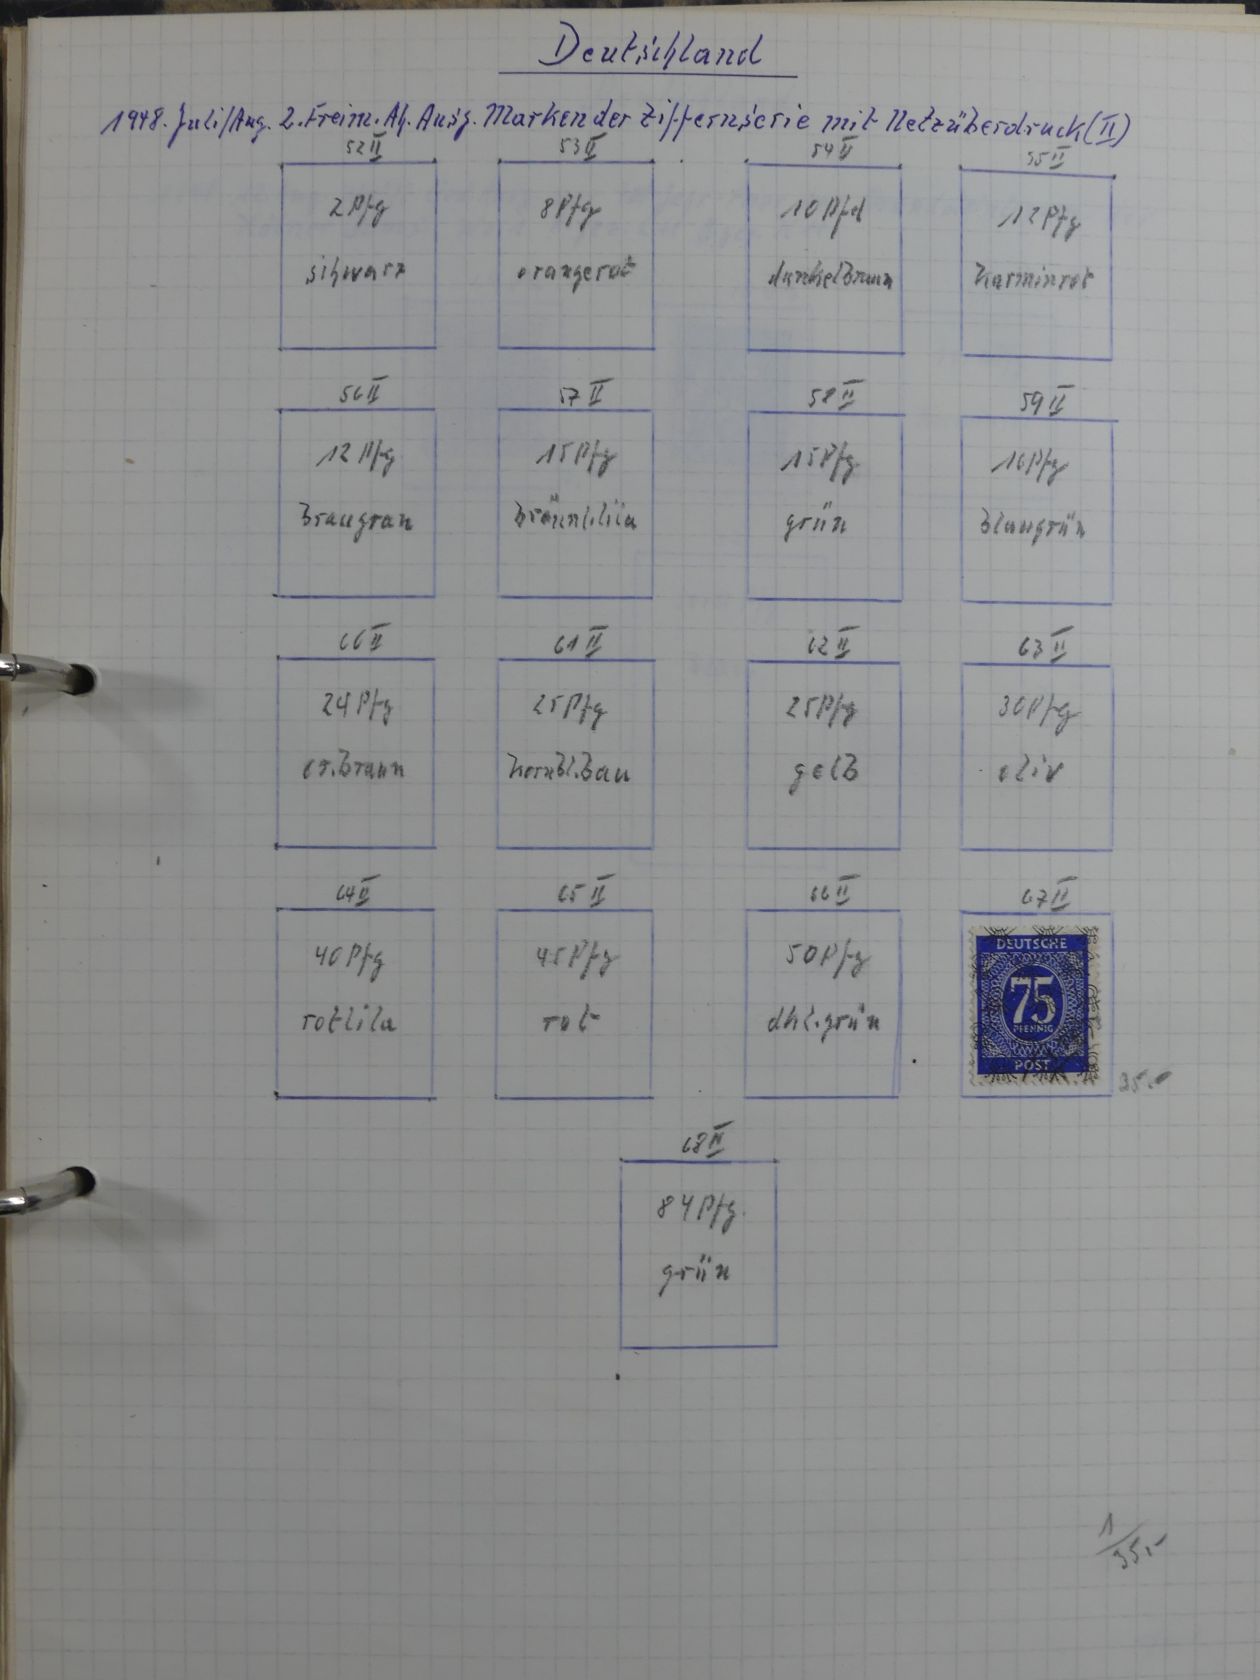 Deutschland
1948. Juli/Aug. 2. Freim. Ah. Ausg. Marken der Ziffernserie mit Netzüberdruck (II)
52 II 53 II 54 II 55 II
2 Pfg 8 Pfg 10 Pfd 12 Pfg
schwarz orangerot dunkelbraun karminrot
56 II 57 II 58 II 59 II
12 Pfg 15 Pfg 15 Pfg 16 Pfg
braugrau bräunl.lila grün blaugrün
60 II 61 II 62 II 63 II
24 Pfg 25 Pfg 25 Pfg 30 Pfg
or.braun kornbl.bau gelb oliv
64 II 65 II 66 II 67 II
40 Pfg 45 Pfg 50 Pfg
rotlila rot dkl.grün
DEUTSCHE
75
PFENNIG
POST
35.-
68 II
84 Pfg.
grün
1/35.-